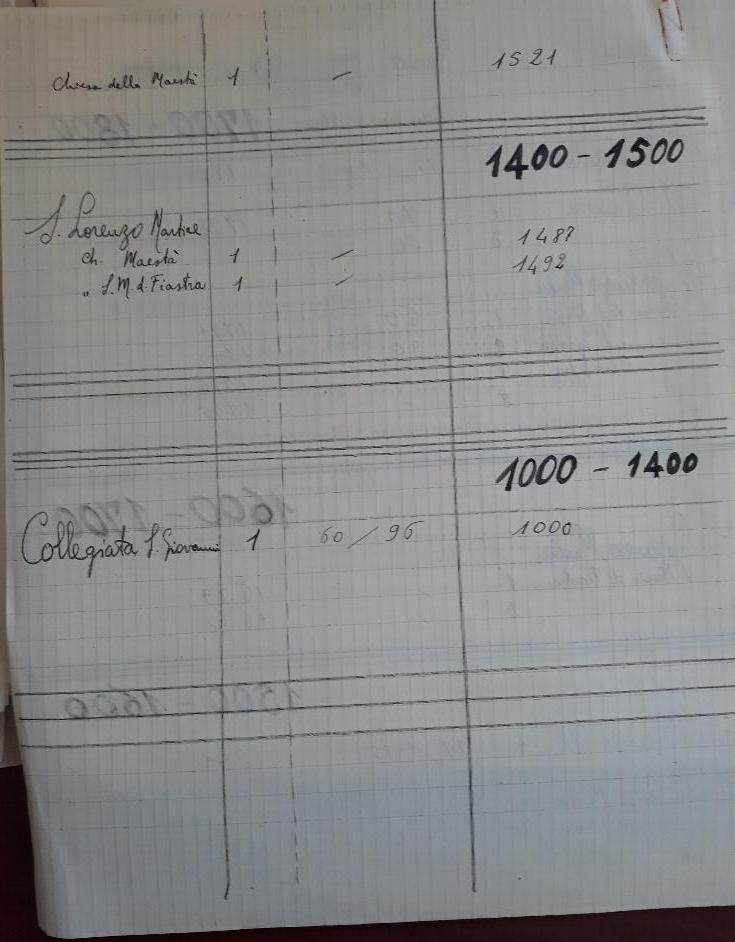 Chiesa della Maestà 1 – 1521
1400 - 1500
S. Lorenzo Martire
1487
Ch. Maestà 1 – 1492
" S.M.d. Fiastra 1 –
1000 - 1400
Collegiata S. Giovanni 1 60 / 96 1000